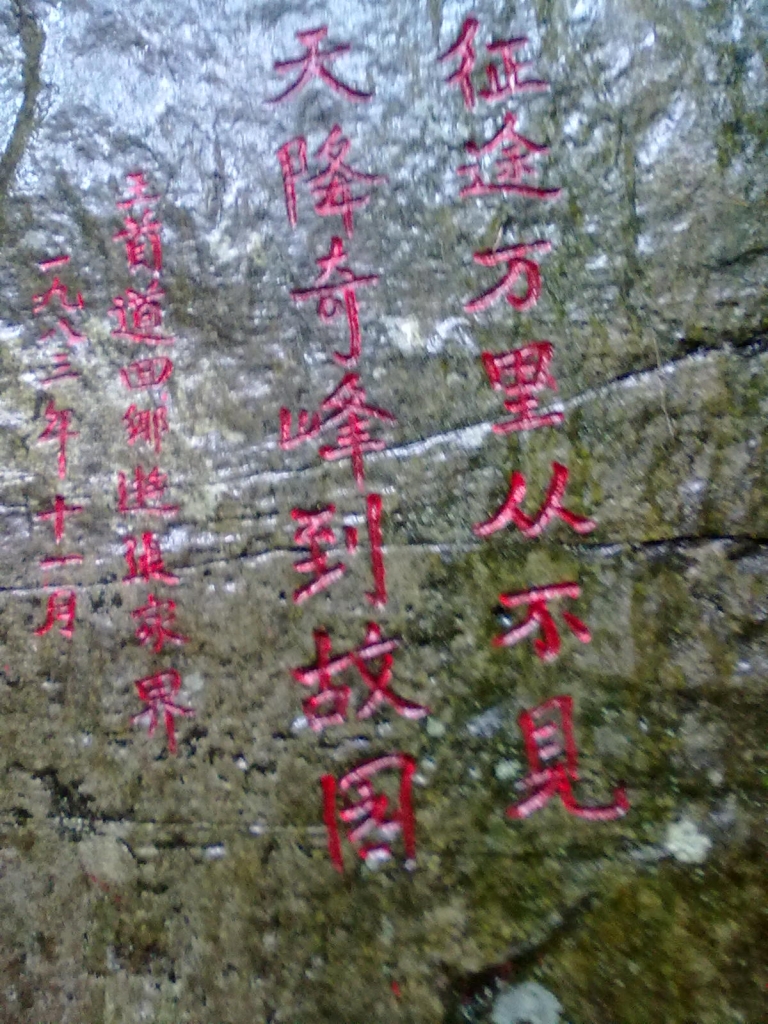 征途万里从不见
天降奇峰到故园
王首道回乡游张家界
一九八三年十一月